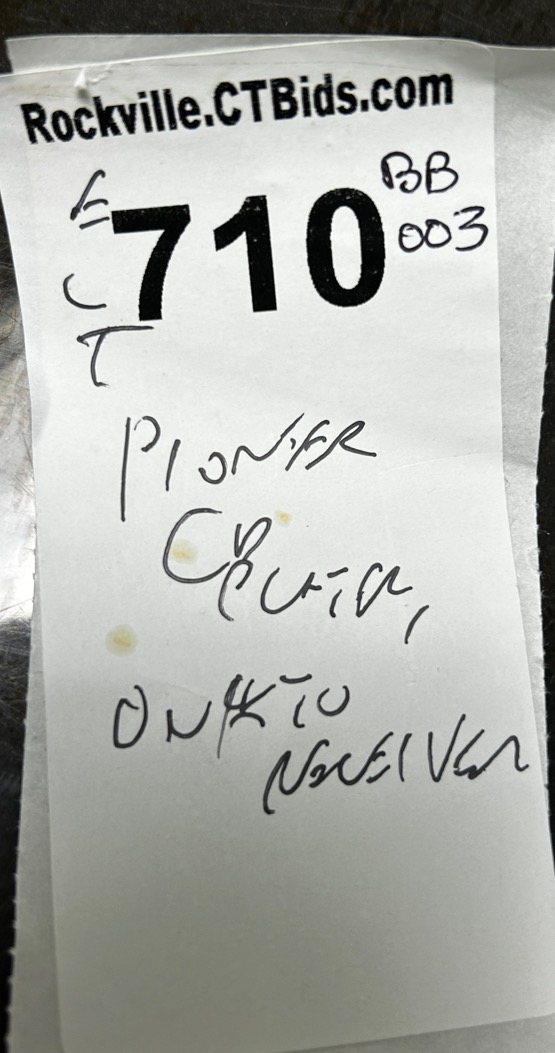 Rockville.CTBids.com
E
710
BB
003
C
T
PIONEER
CD
PLAYER,
ONKYO
RECEIVER